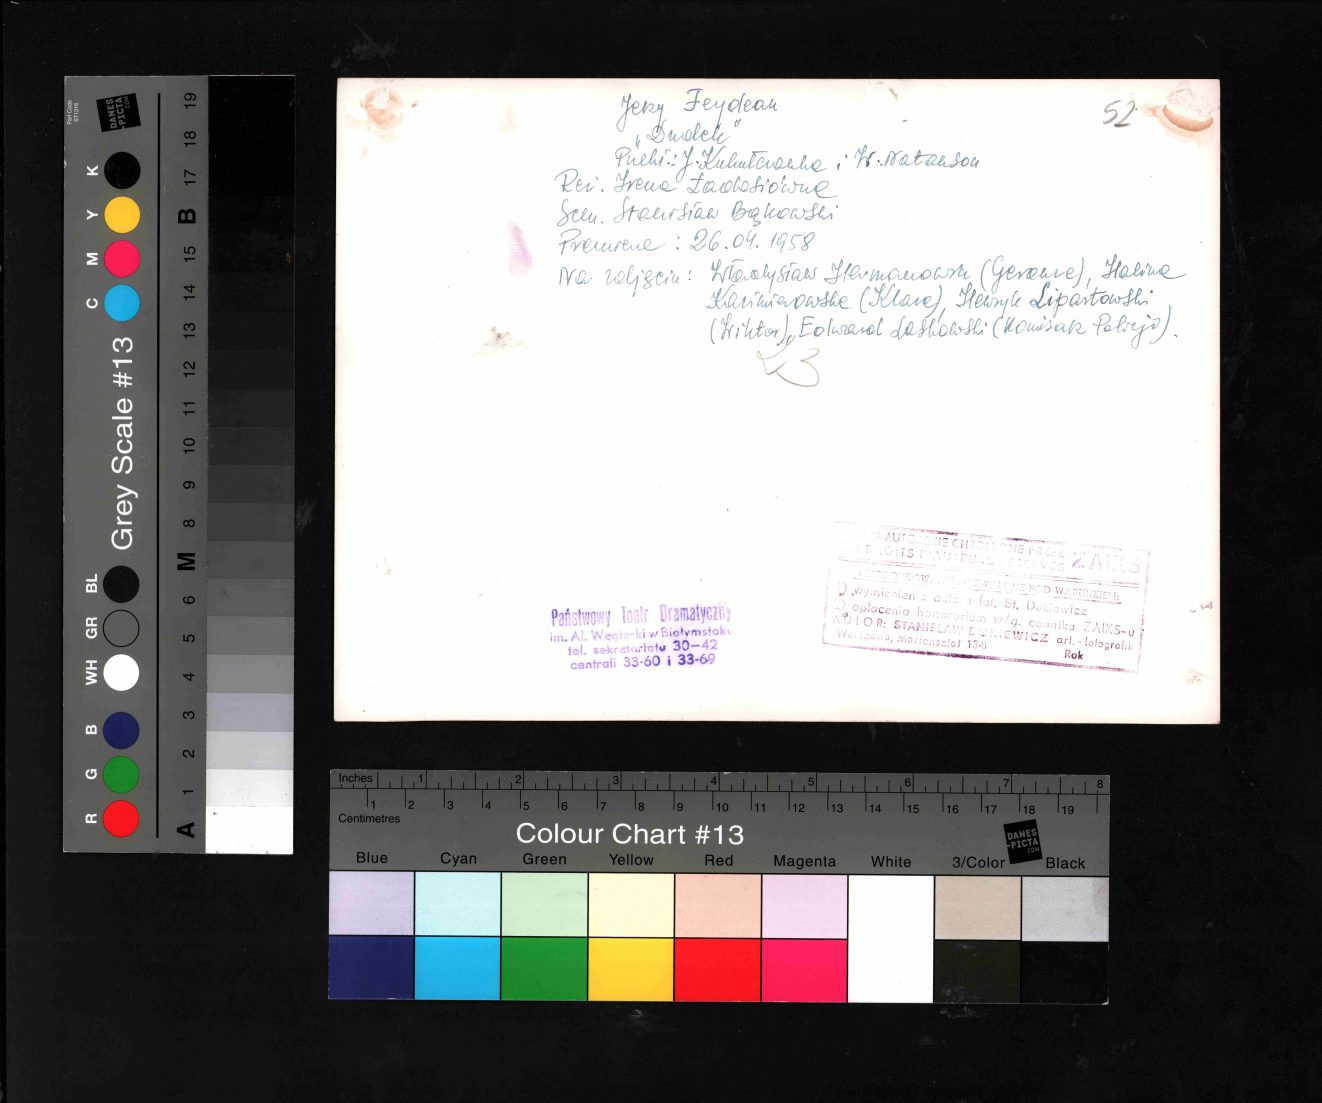 Jerzy Feydeau
"Dudek"
Przekł.: J. Kukułczanka i W. Natanson
Reż. Irena Ładosiówna
Scen. Stanisław Bąkowski
Premiera: 26.04.1958
Na zdjęciu: Władysław (Gerome), Halina
Kazimierowska (Klara), Henryk Lipartowski
(Wiktor), Edward Laskowski (Komisarz Policji).
52
Państwowy Teatr Dramatyczny
im. Al. Węgierki w Białymstoku
tel. sekretariatu 30-42
centrali 33-60 i 33-69
AUTORSKIE CHRONIONE PRZEZ ZAIKS
DROITS D'AUTEURS RESERVES
DOZWOLONE POD WARUNKIEM:
wymienienia autora fot. St. Dukiewicz
opłacenia honorarium w/g. cennika ZAIKS-u
AUTOR: STANISŁAW DUKIEWICZ art.-fotografik
Warszawa, Mariensztat 13-8
Rok
Part Code
ST1316
DANES
-PICTA
.COM
Grey Scale #13
R G B WH GR BL C M Y K
A 1 2 3 4 5 6 M 8 9 10 11 12 13 14 15 B 17 18 19
Inches 1 2 3 4 5 6 7 8
1 2 3 4 5 6 7 8 9 10 11 12 13 14 15 16 17 18 19
Centimetres
Colour Chart #13
DANES
-PICTA
.COM
Blue Cyan Green Yellow Red Magenta White 3/Color Black